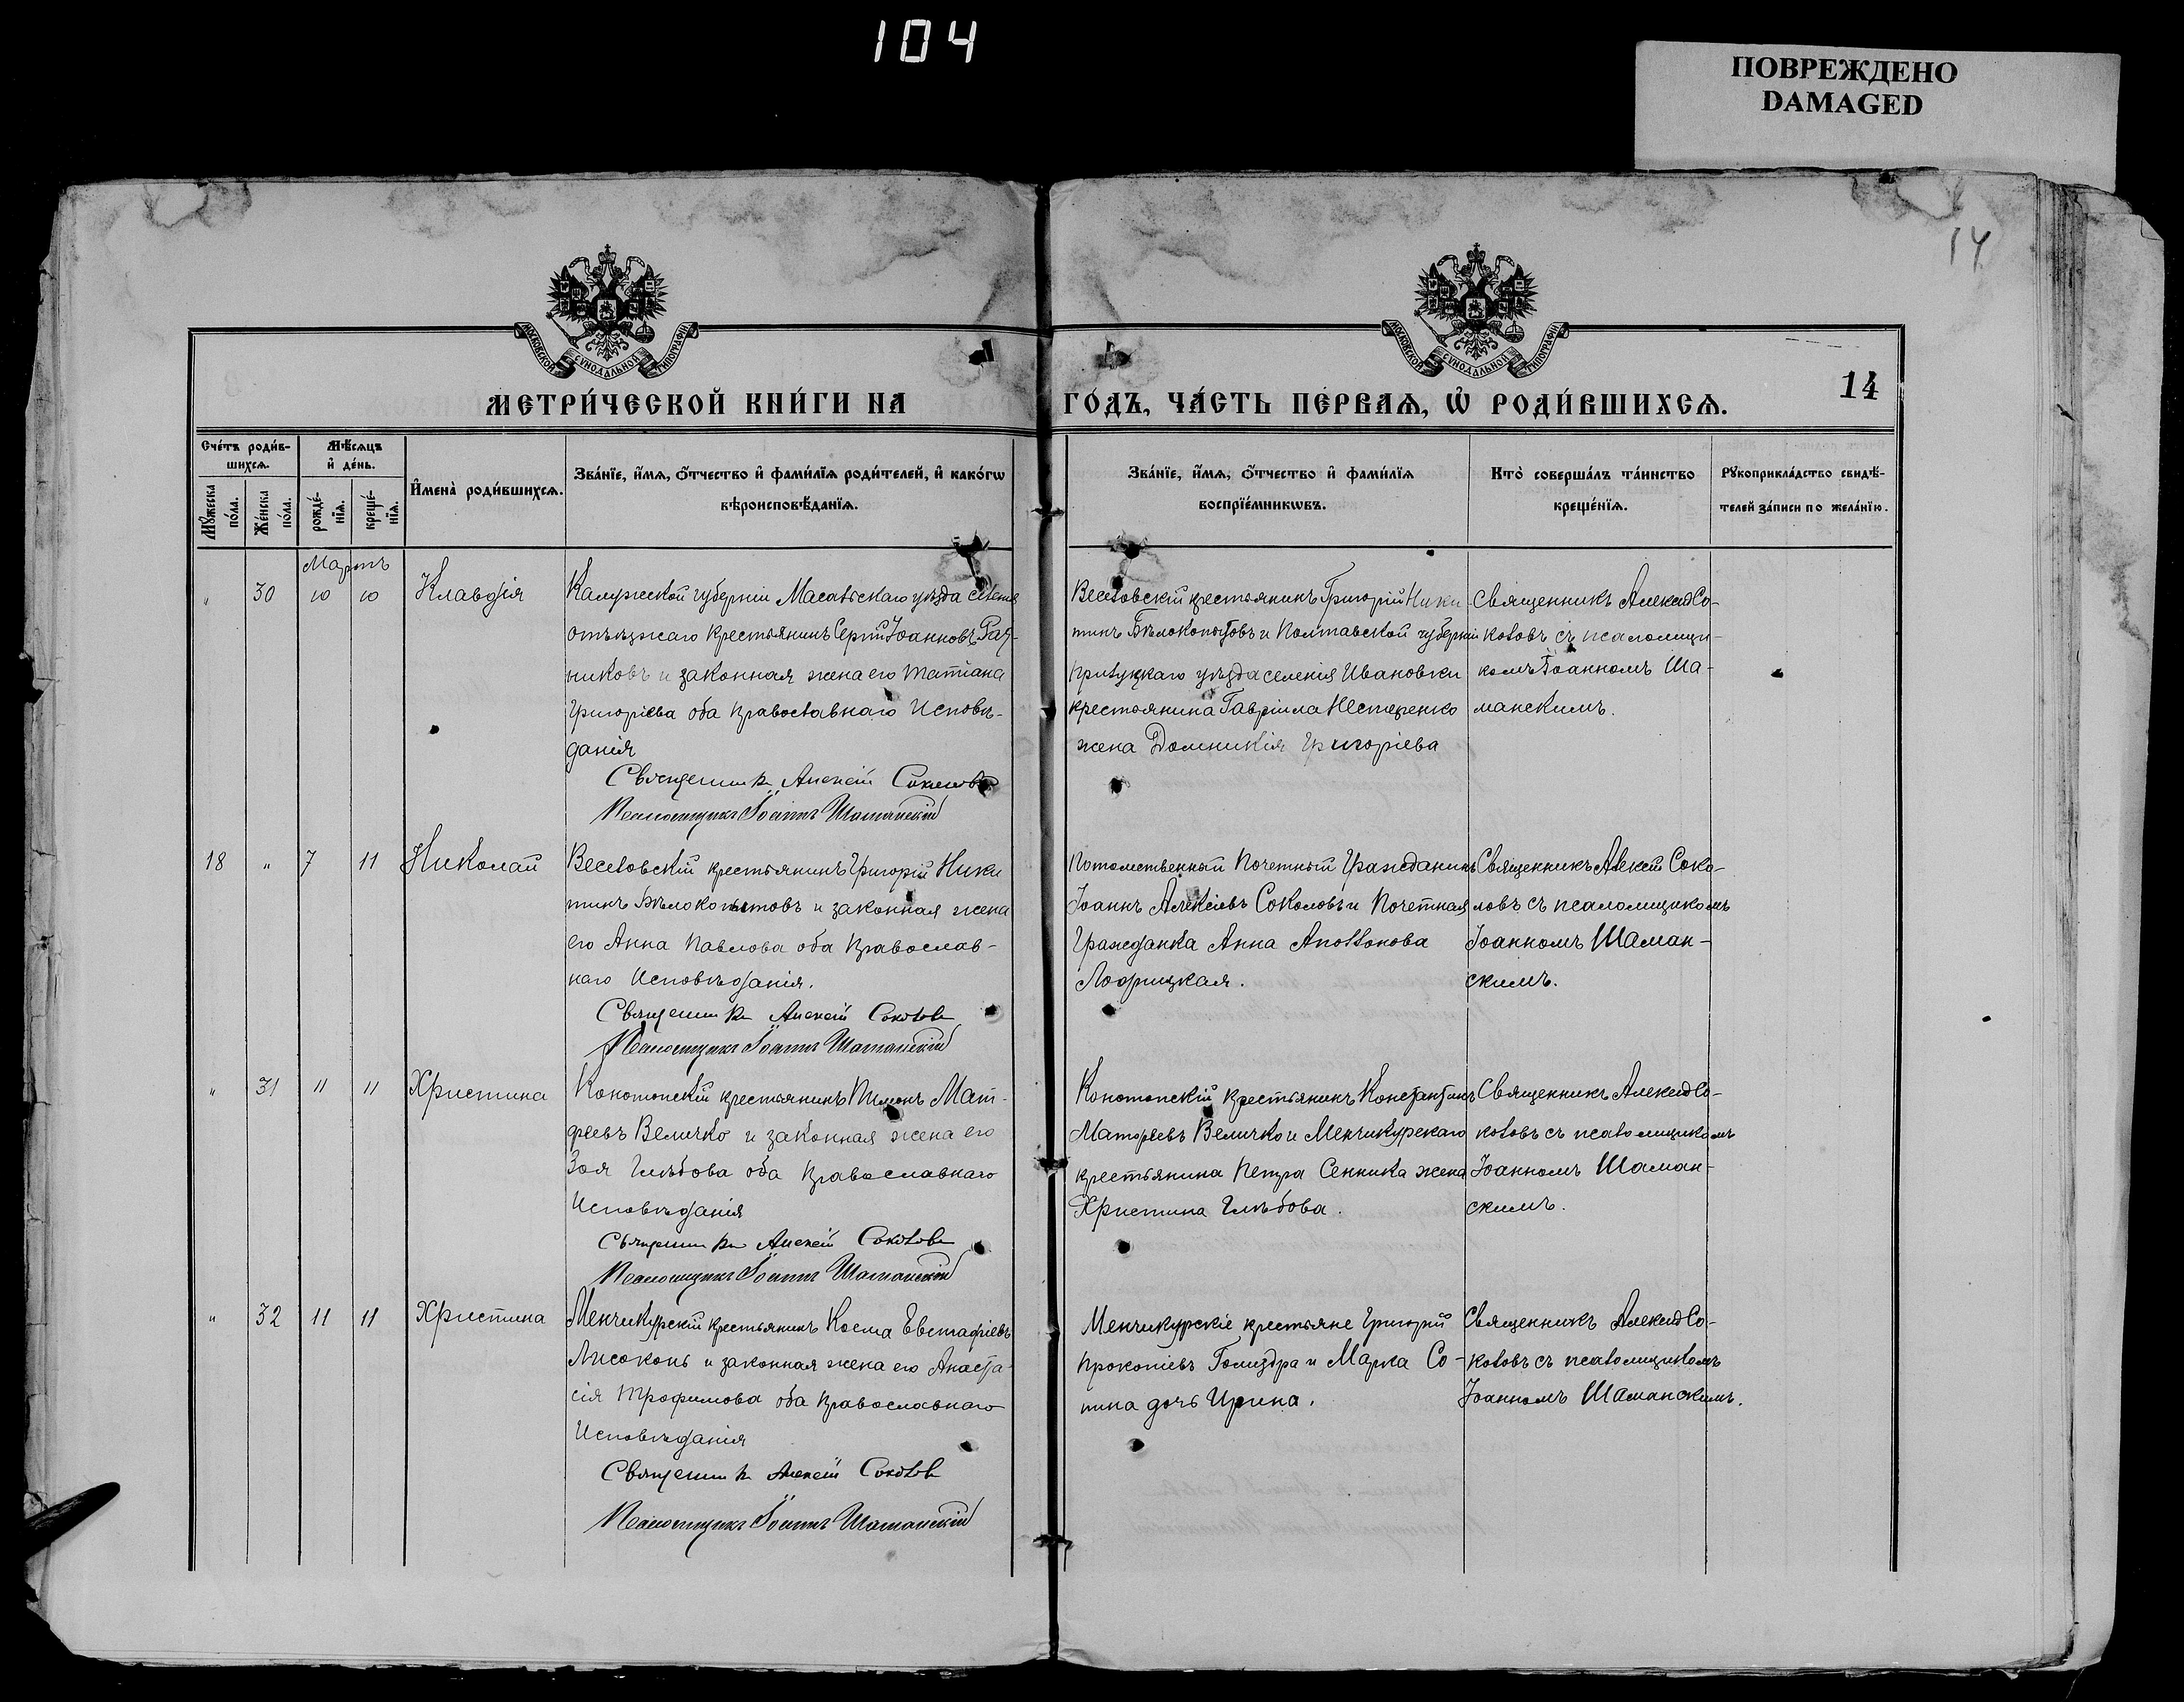 104
ПОВРЕЖДЕНО
DAMAGED
14
МОСКОВСКОЙ СУНОДАЛЬНОЙ ТИПОГРАФІИ
МОСКОВСКОЙ СУНОДАЛЬНОЙ ТИПОГРАФІИ
МЕТРИ́ЧЕСКОЙ КНИ́ГИ НА
ГО́ДЪ, ЧА́СТЬ ПЕ́РВАѦ, Ѡ РОДИ́ВШИХСѦ.
14
Сче́тъ роди́в-
шихсѧ.
Мѣ́сѧцъ
и҆ де́нь.
Му́жеска
по́ла.
Же́нска
по́ла.
рожде́-
нїѧ.
креще́-
нїѧ.
И҆мена̀ роди́вшихсѧ.
Зва́нїе, и҆́мѧ, ѻ҆́тчество и҆ фами́лїѧ роди́телей, и҆ како́гѡ
вѣроисповѣ́данїѧ.
Зва́нїе, и҆́мѧ, ѻ҆́тчество и҆ фами́лїѧ
воспрїе́мникѡвъ.
Кто̀ соверша́лъ та́инство
креще́нїѧ.
Рꙋкоприкла́дство свидѣ́-
телей за́писи по жела́нїю.
Мартъ
" 30 10 10 Клавдія
Калужской губерніи Масальскаго уѣзда селенія
крестьянинъ Сергій Іоанновъ
никовъ и законная жена его Татіана
Григоріева оба православнаго Исповѣ-
данія
Священникъ Алексій Соколовъ
Псаломщикъ Іоаннъ Шаманскій
Веселовскій крестьянинъ Григорій Ники
тинъ Бѣлокопытовъ и Полтавской губерніи
Прилуцкаго уѣзда селенія Ивановки
крестьянина Гавріила Нестеренко
жена Домникія Григоріева
Священникъ Алексій Со-
коловъ съ псаломщи-
комъ Іоанномъ Ша-
манскимъ.
18 " 7 11 Николай
Веселовскій крестьянинъ Григорій Ники
тинъ Бѣлокопытовъ и законная жена
его Анна Павлова оба православ-
наго Исповѣданія.
Священникъ Алексій Соколовъ
Псаломщикъ Іоаннъ Шаманскій
Потомственный Почетный Гражданинъ
Іоаннъ Алексіевъ Соколовъ и Почетная
Гражданка Анна Аполлонова
Лофицкая.
Священникъ Алексій Соко-
ловъ съ псаломщикомъ
Іоанномъ Шаман-
скимъ.
" 31 11 11 Христина
Конотопскій крестьянинъ Пимонъ Мат-
феевъ Величко и законная жена его
Зоя Глѣбова оба православнаго
Исповѣданія
Священникъ Алексій Соколовъ
Псаломщикъ Іоаннъ Шаманскій
Конотопскій крестьянинъ Константинъ
Матфеевъ Величко и Менчикурскаго
крестьянина Петра Сенника жена
Христина Глѣбова.
Священникъ Алексій Со-
коловъ съ псаломщикомъ
Іоанномъ Шаман-
скимъ.
" 32 11 11 Христина
Менчикурскій крестьянинъ Косма Евстафіевъ
Лисоконь и законная жена его Анаста-
сія Трофимова оба православнаго
Исповѣданія
Священникъ Алексій Соколовъ
Псаломщикъ Іоаннъ Шаманскій
Менчикурскіе крестьяне Григорій
Прокопіевъ Гомиздра и Марка Со-
пина дочь Ирина.
Священникъ Алексій Со-
коловъ съ псаломщикомъ
Іоанномъ Шаманскимъ.